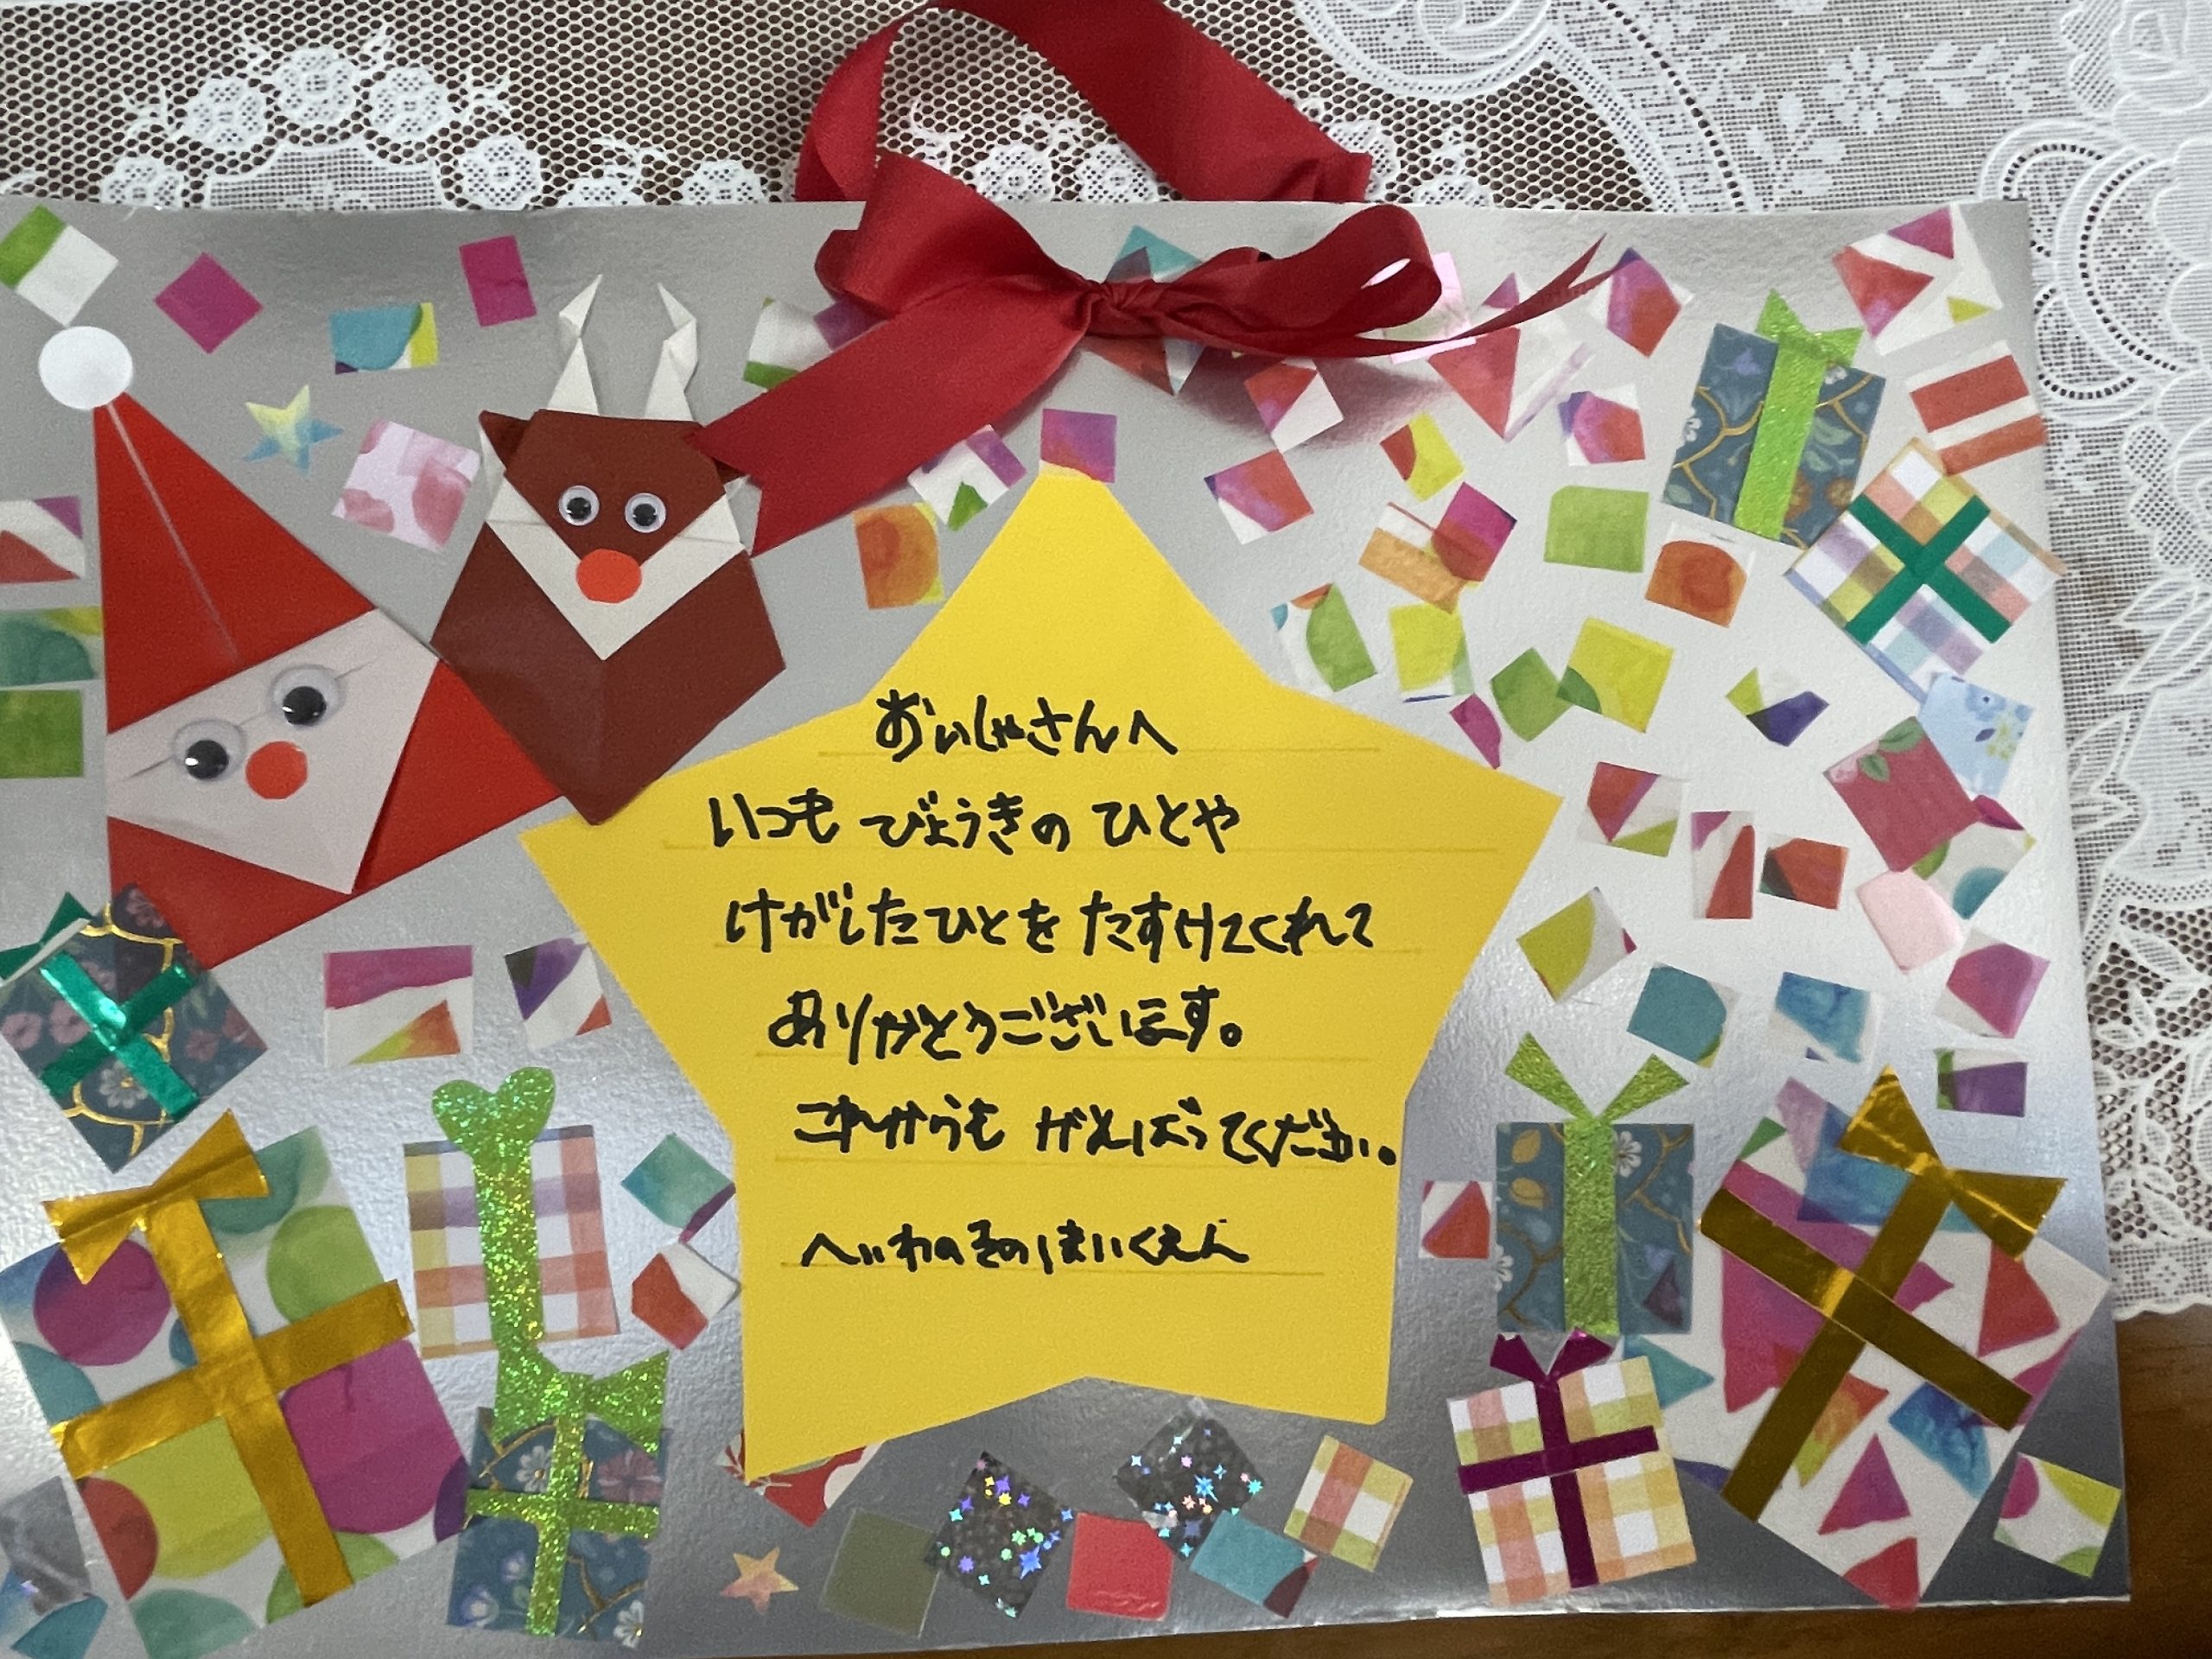 おいしゃさんへ
いつも びょうきの ひとや
けがしたひとを たすけてくれて
ありがとうございます。
これからも がんばってください。
へいわのそのほいくえん